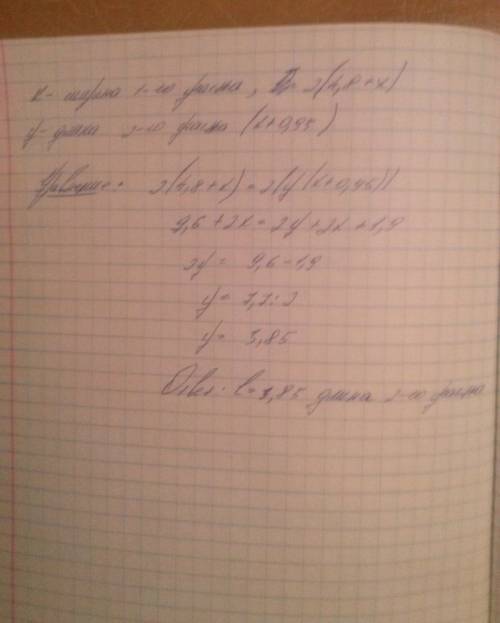 x - ширина 1-го участка, P = 2(4,8+x)
y - длина 2-го участка (x+0,95)
Уравнение: 2(4,8+x) = 2(y(x+0,95))
9,6 + 2x = 2y + 2x + 1,9
2y = 9,6 - 1,9
y = 7,7 : 2
y = 3,85
Ответ: l = 3,85 длина 2-го участка